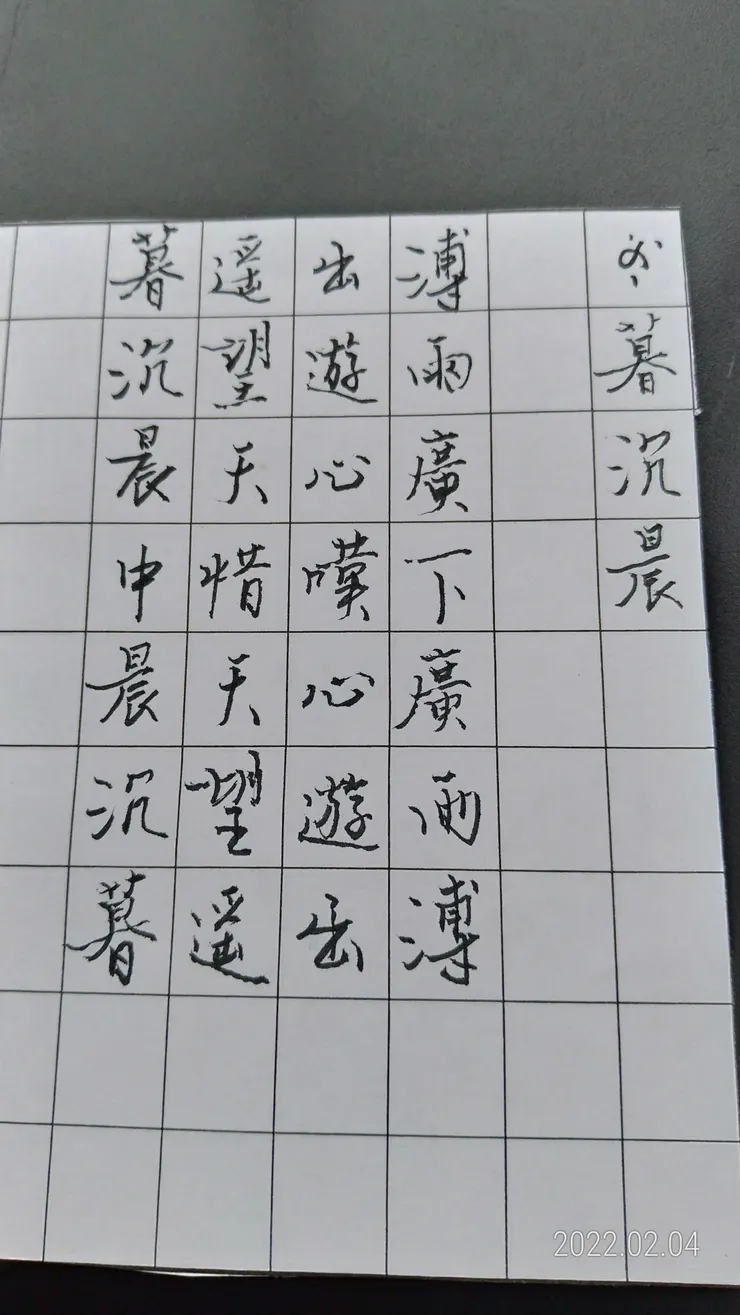 暮沉晨
溥雨廣下廣雨溥
出遊心嘆心遊出
遥望天惜天望遥
暮沉晨申晨沉暮
2022.02.04